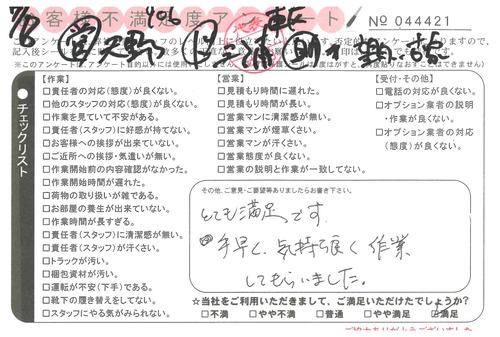 お客様不満足度アンケート
No 044421
チェックリスト
【作業】
□責任者の対応(態度)が良くない。
□他のスタッフの対応(態度)が良くない。
□作業を見ていて不安がある。
□責任者(スタッフ)に好感が持てない。
□お客様への挨拶が出来ていない。
□ご近所への挨拶・気遣いが無い。
□作業開始前の内容確認がなかった。
□作業開始時間が遅れた。
□荷物の取り扱いが雑である。
□お部屋の養生が出来ていない。
□作業時間が長すぎる。
□責任者(スタッフ)に清潔感が無い。
□責任者(スタッフ)が汗くさい。
□トラックが汚い。
□梱包資材が汚い。
□運転が不安(下手)である。
□靴下の履き替えをしてない。
□スタッフにやる気がみられない。
【営業】
□見積もり時間に遅れた。
□見積もり時間が長い。
□営業マンに清潔感が無い。
□営業マンが煙草くさい。
□営業マンが汗くさい。
□営業態度が良くない。
□営業の説明と作業が一致してない。
【受付・その他】
□電話の対応が良くない。
□オプション業者の説明
・作業が良くない。
□オプション業者の対応
(態度)が良くない。
その他、ご意見・ご要望等ありましたらお書き下さい。
とても満足です。
手早く、気持ち良く作業
してもらいました。
☆当社をご利用いただきまして、ご満足いただけたでしょうか?
□不満 □やや不満 □普通 □やや満足 □満足
ご協力ありがとうございました